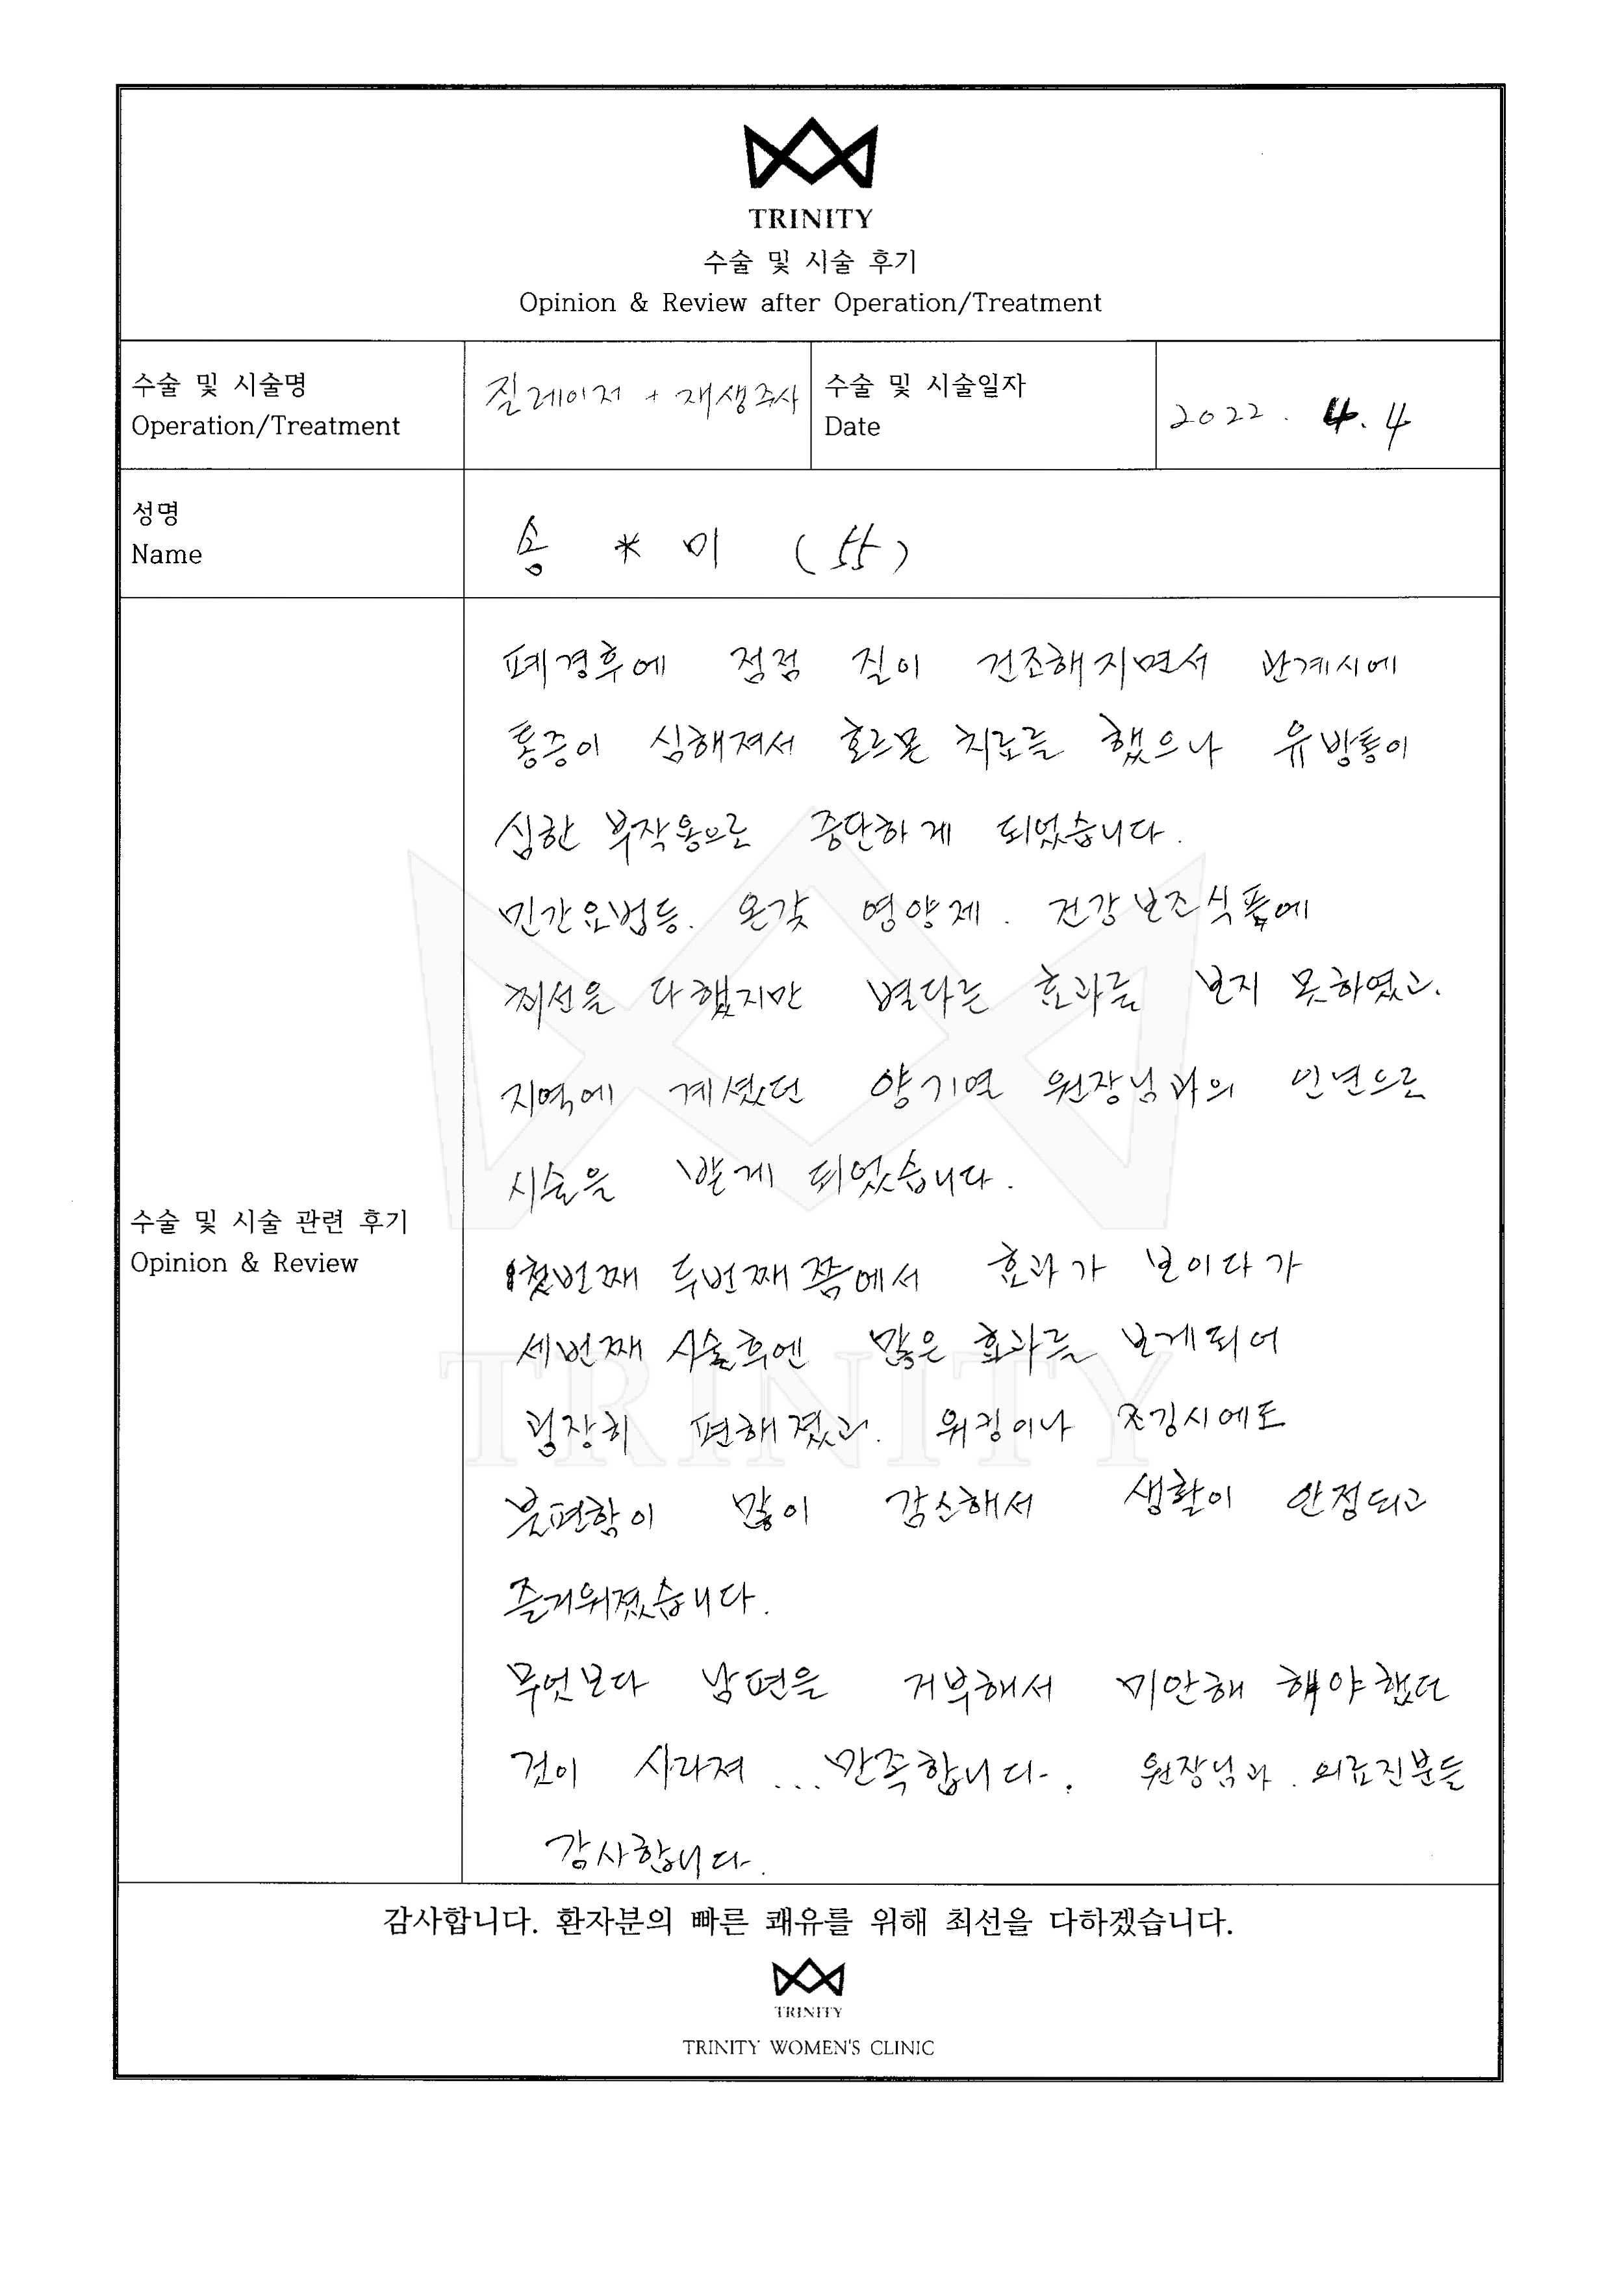 TRINITY
수술 및 시술 후기
Opinion & Review after Operation/Treatment
수술 및 시술명
Operation/Treatment
질레이저 + 재생주사
수술 및 시술일자
Date
2022. 4. 4
성명
Name
송 * 미 (55)
수술 및 시술 관련 후기
Opinion & Review
폐경후에 점점 질이 건조해지면서 관계시에
통증이 심해져서 호르몬 치료를 했으나 유방통이
심한 부작용으로 중단하게 되었습니다.
민간요법등. 온갖 영양제. 건강보조식품에
최선을 다했지만 별다른 효과를 보지 못하였고.
지역에 계셨던 양기열 원장님과의 인년으로
시술을 받게 되었습니다.
첫번째 두번째쯤에서 효과가 보이다가
세번째 시술후엔 많은 효과를 보게되어
굉장히 편해졌고. 워킹이나 조깅시에도
불편함이 많이 감소해서 생활이 안정되고
즐거워졌습니다.
무엇보다 남편을 거부해서 미안해 해야했던
것이 사라져 ... 만족합니다. 원장님과. 의료진분들
감사합니다.
감사합니다. 환자분의 빠른 쾌유를 위해 최선을 다하겠습니다.
TRINITY
TRINITY WOMEN'S CLINIC
TRINITY